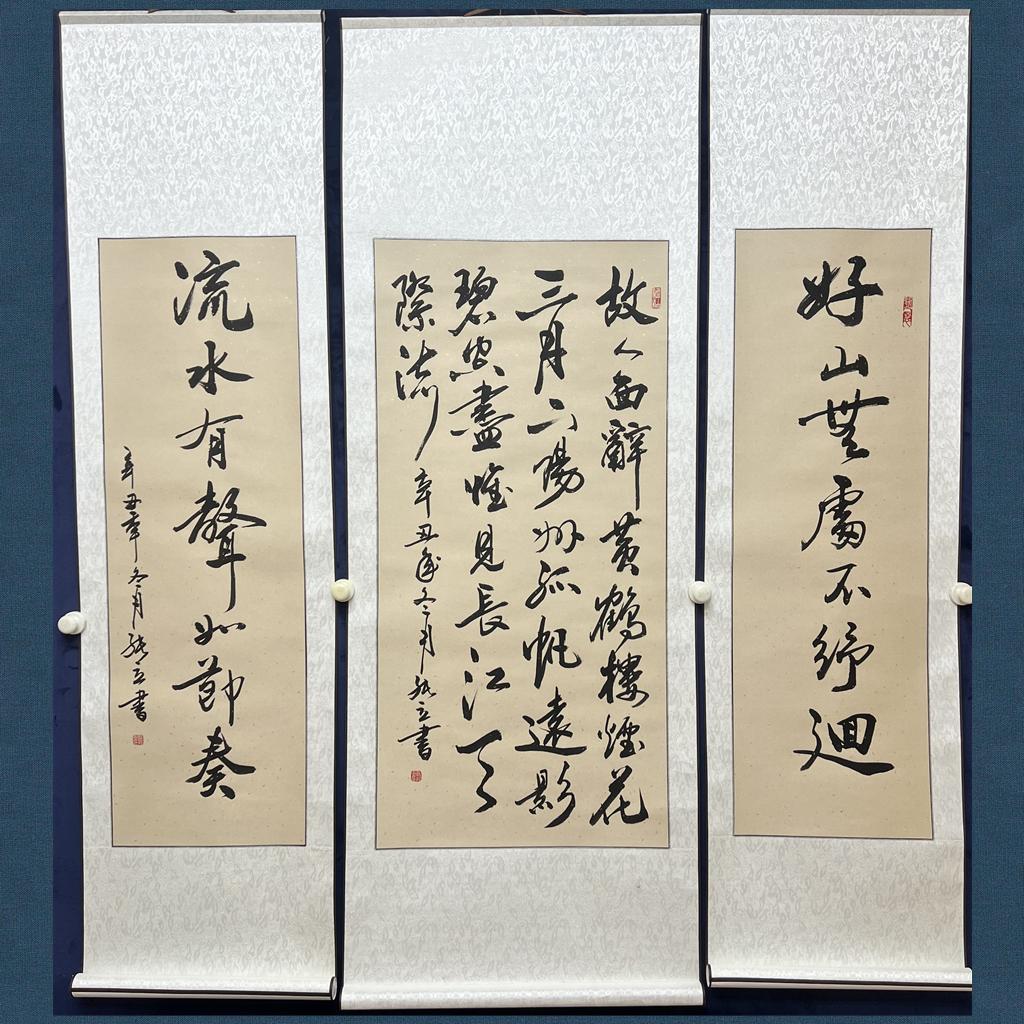 好山無處不紆迴
故人西辭黃鶴樓煙花
三月下揚州孤帆遠影
碧空盡惟見長江天
際流 辛丑年冬月 立書
流水有聲如節奏
辛丑年冬月 立書